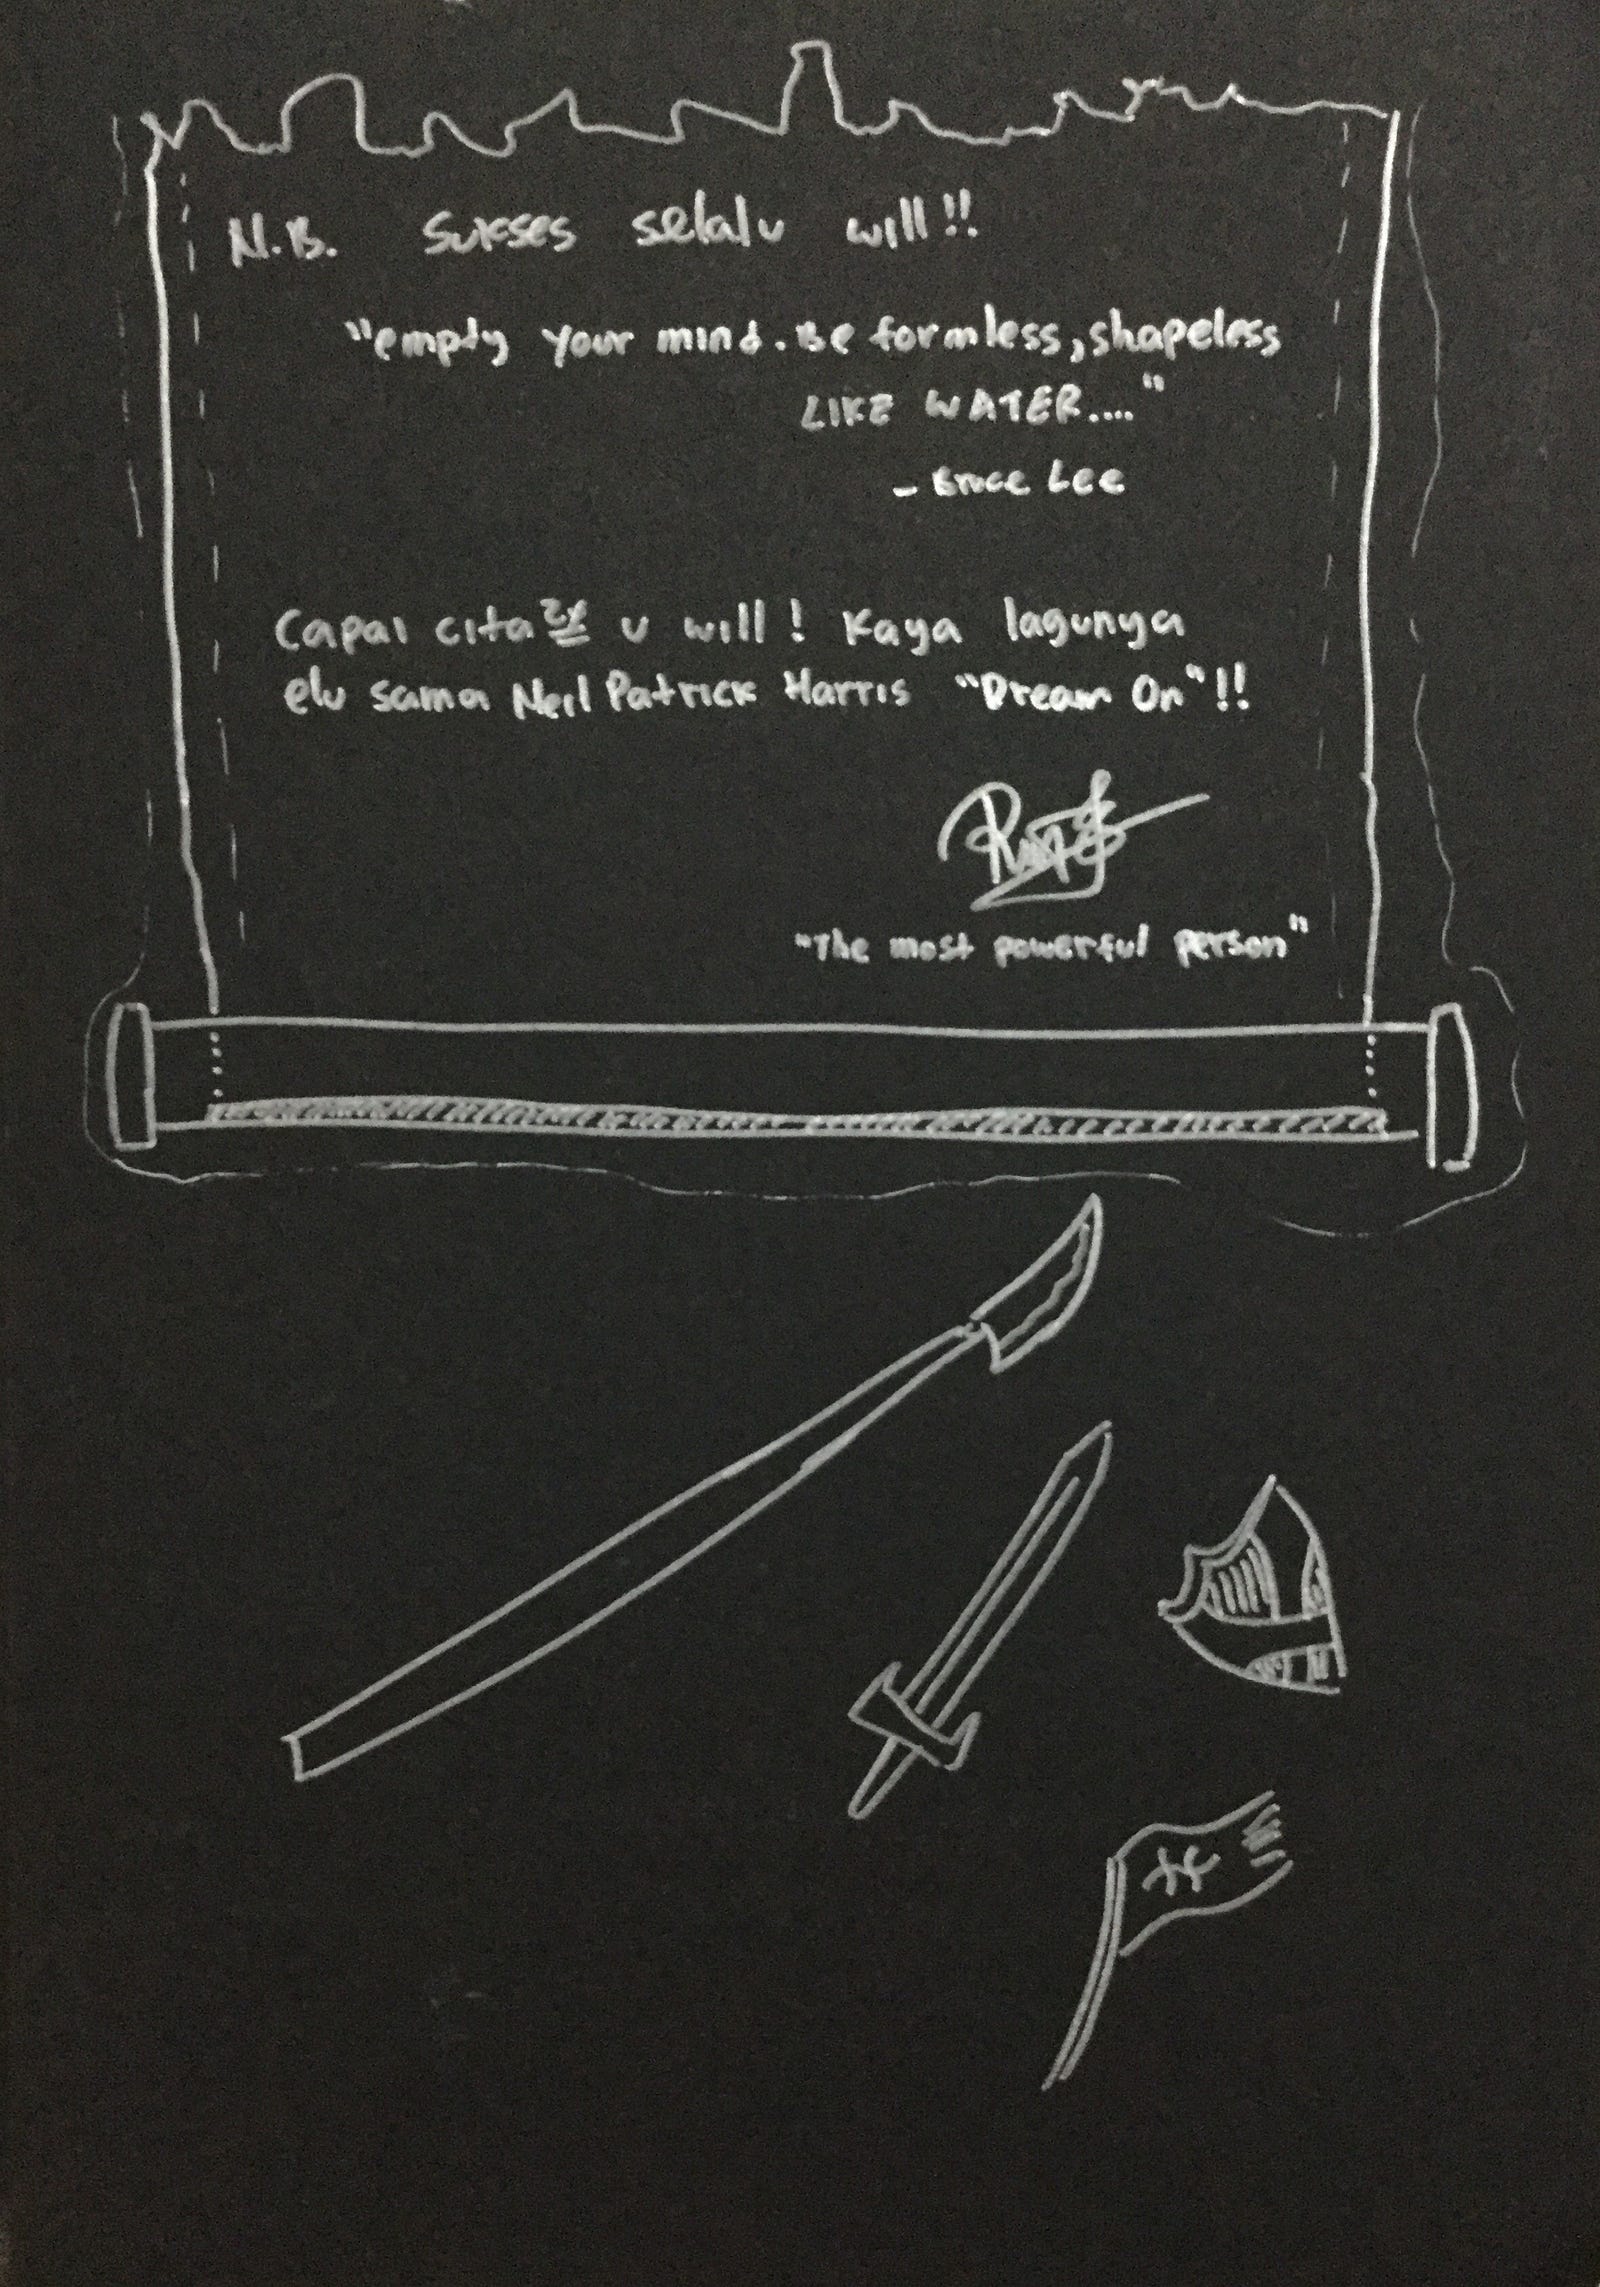 N.B. Sukses selalu will!!
"empty your mind. Be formless, shapeless
LIKE WATER...."
- Bruce Lee
Capai cita2x u will! Kaya lagunya
elu sama Neil Patrick Harris "Dream On"!!
"The most powerful person"